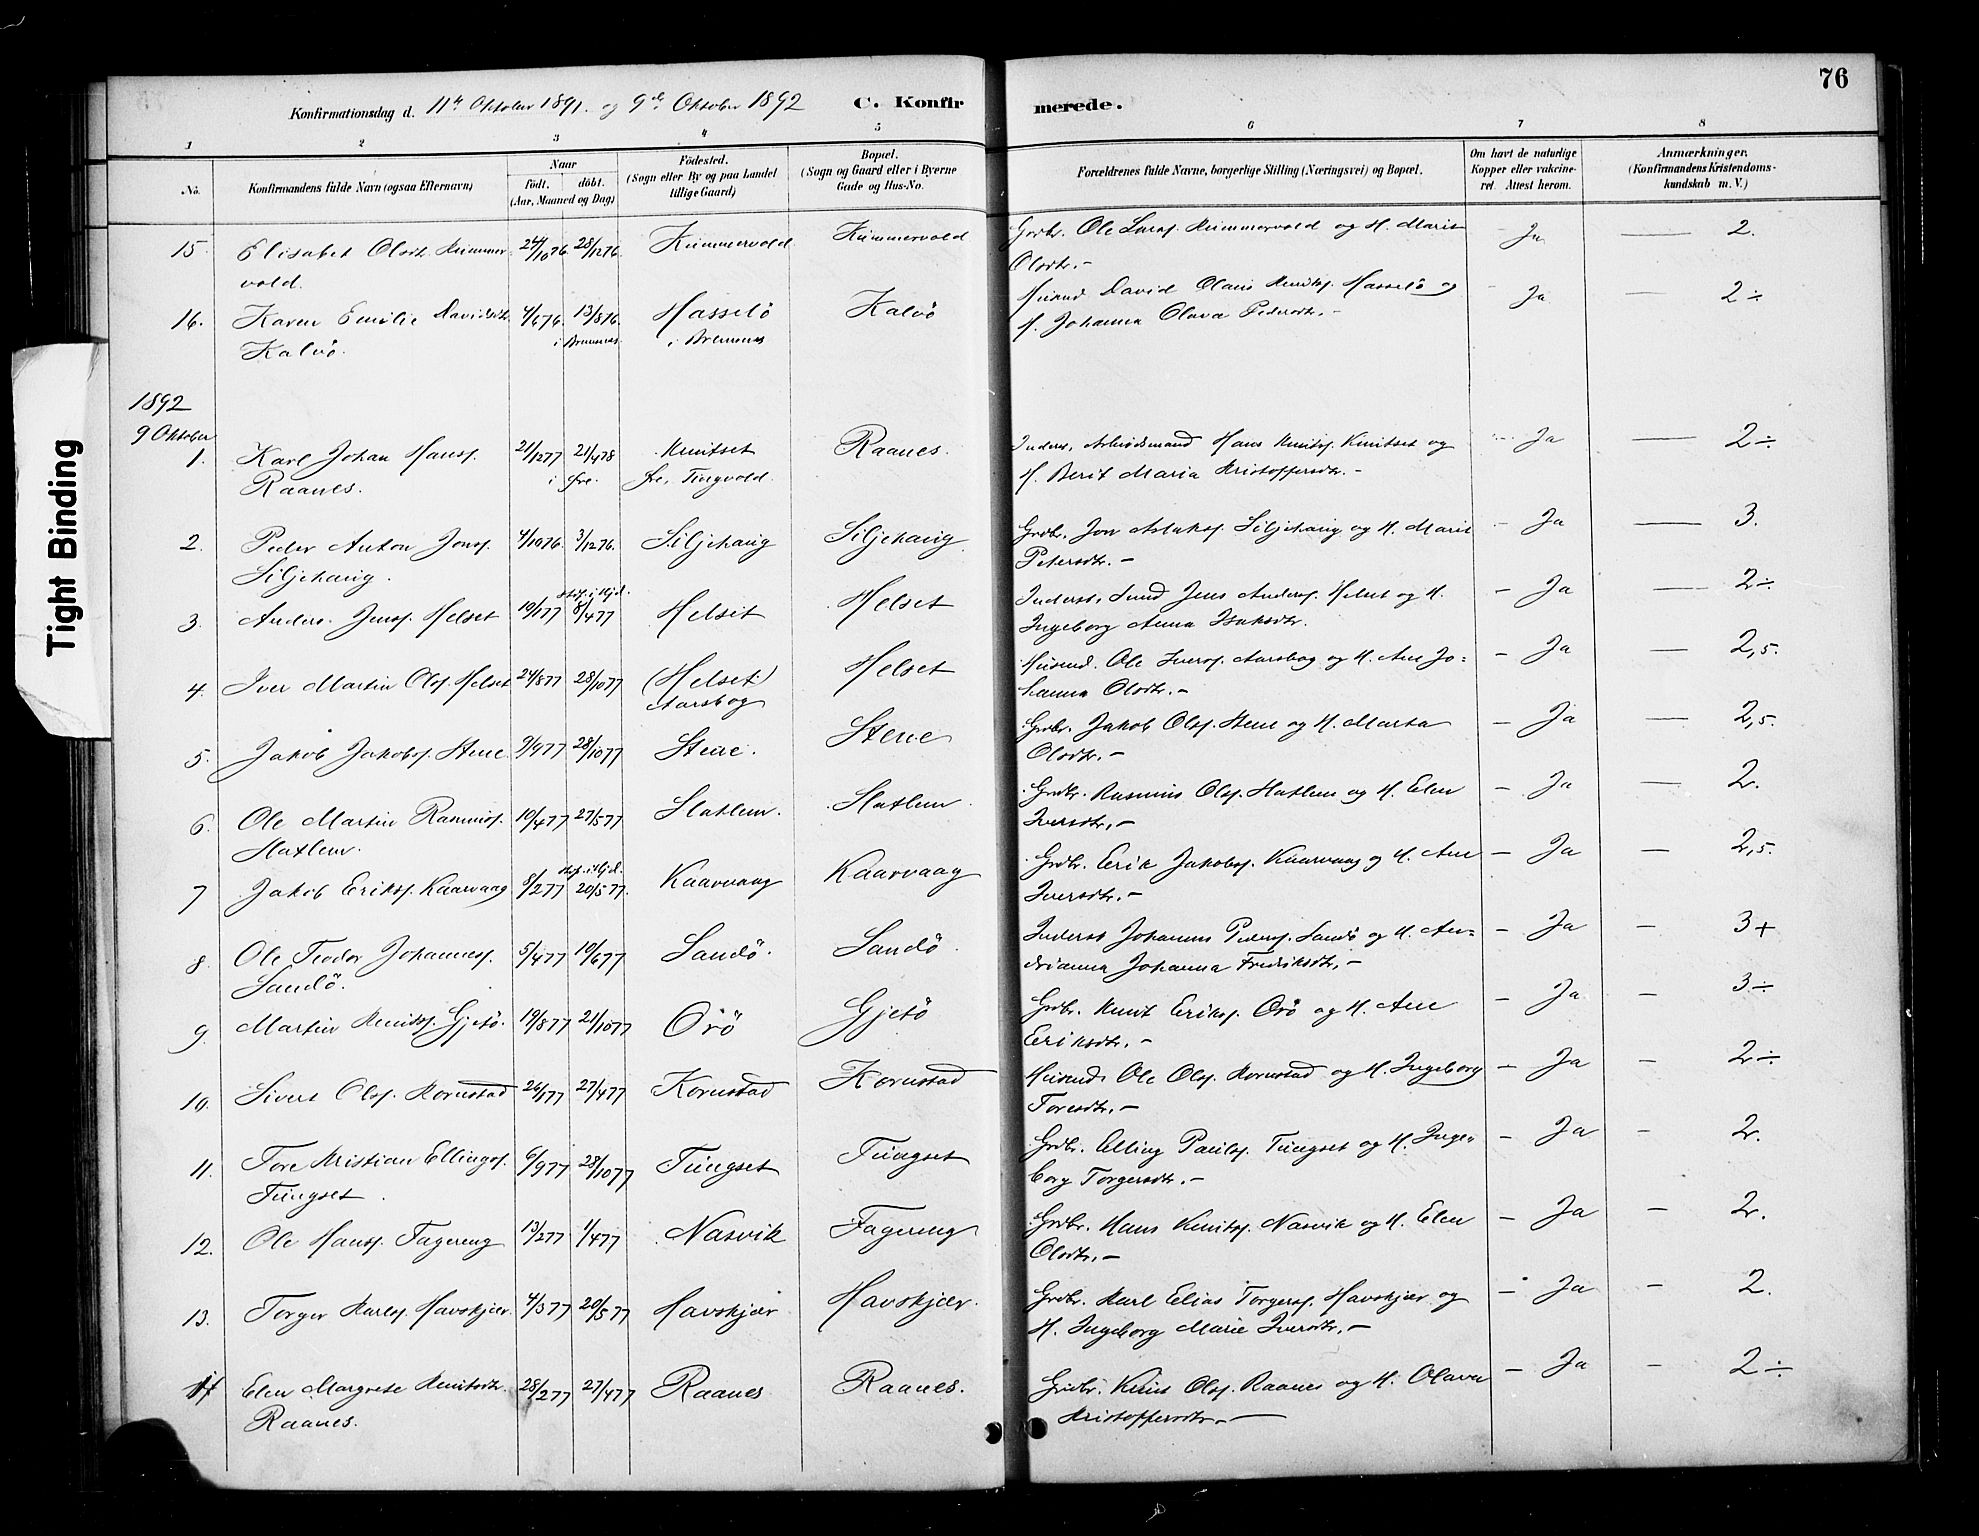 76
Konfirmationsdag d. 11te Oktober 1891. og 9de Oktober 1892 C. Konfirmerede.
1 2 3 4 5 6 7 8
No. Konfirmandens fulde Navn (ogsaa Efternavn) Naar født. døbt. (Aar, Maaned og Dag) Fødested. (Sogn eller By og paa Landet tillige Gaard) Bopæl. (Sogn og Gaard eller i Byerne Gade og Hus-No. Forældrenes fulde Navne, borgerlige Stilling (Næringsvei) og Bopæl. Om havt de naturlige Kopper eller vakcineret. Attest herom. Anmærkninger. (Konfirmandens Kristendomskundskab m. V.)
15. Elisabet Olsdt. Kummer- 24/10 76 28/12 76. Kummervold Kummervold Grdbr. Ole Larss. Kummervold og H. Marit Ja 2.
vold. Olsdtr.-
16. Karen Emilie Davidsdtr. 4/6 76. 13/8 76. Hasselö Kalvö Husmd David Olaus Knudss. Hasselö og Ja 2÷
Kalvö. i Bremnes. i Bremnes H. Johanna Olava Pedersdtr.-
1892
9 Oktober
1. Karl Johan Hanss. 21/12 77 21/4 78 Knutset Raanes. Inderst, Arbeidsmand Hans Knutss. Knutset og Ja 2÷
Raanes. i Øre. Øre, Tingvold. H. Berit Maria Kristoffersdtr.-
2. Peder Anton Jonss. 4/10 76. 3/12 76. Siljehaug Siljehaug Grdbr. Jon Aslakss. Siljehaug og H. Marit Ja 3.
Siljehaug. Petersdtr.-
3. Anders Jenss. Helset 10/1 77 8/4 77 Helset Helset Inderst, Smed Jens Anderss. Helset og H. Ja 2÷
Ingeborg Anna Isaksdtr.
4. Iver Martin Olss. Helset 24/8 77 28/10 77 (Helset) Helset Husmd. Ole Iverss. Aarsbog og H. Ane Jo= Ja 2,5.
Aarsbog hanna Olsdtr.-
5. Jakob Jakobss. Stene. 9/9 77 28/10 77 Stene. Stene Grdbr. Jakob Olss. Stene og H. Marta Ja 2,5.
Olsdtr.-
6. Ole Martin Rasmuss. 10/4 77 27/5 77 Hatlem. Hatlem. Grdbr. Rasmus Olss. Hatlem og H. Elen Ja 2.
Hatlem. Iversdtr.-
7 Jakob Erikss. Kaarvaag 8/2 77 20/5 77. Kaarvaag Kaarvaag Grdbr. Erik Jakobss. Kaarvaag og H. Ane Ja 2,5.
Iversdtr.-
8. Ole Teodor Johanness. 5/4 77 10/6 77 Sandö. Sandö. Inderst Johannes Pederss. Sandö og H. An= Ja 3+
Sandö. drianna Johanna Fredriksdtr.-
9. Martin Knutss. Gjetö. 19/8 77 21/10 77 Orö Gjetö Grdbr. Knut Erikss. Orö og H. Ane Ja 3÷
Eriksdtr.-
10. Sivert Olss. Kornstad 26/1 77 27/4 77 Kornstad Kornstad Husmd. Ole Olss. Kornstad og H. Ingeborg Ja 2÷
Toresdtr.-
11. Tore Kristian Ellingss. 6/9 77 28/10 77 Tungset Tungset Grdbr. Elling Paulss. Tungset og H. Inge- Ja 2.
Tungset. borg Torgersdtr.-
12. Ole Hanss. Fagereng 13/2 77 1/4 77 Nasvik Fagereng Grdbr. Hans Knutss. Nasvik og H. Elen Ja 2.
Olsdtr.-
13. Torger Karlss. Havskjær. 4/3 77 20/5 77 Havskjær Havskjær. Grdbr. Karl Elias Torgerss. Havskjær og Ja 2.
H. Ingeborg Marie Iversdtr.-
14 Elen Margrete Knutsdtr. 28/2 77 27/4 77 Raanes Raanes. Grdbr. Knut Olss. Raanes og H. Olava Ja 2÷
Raanes. Kristoffersdtr.-
Tight Binding